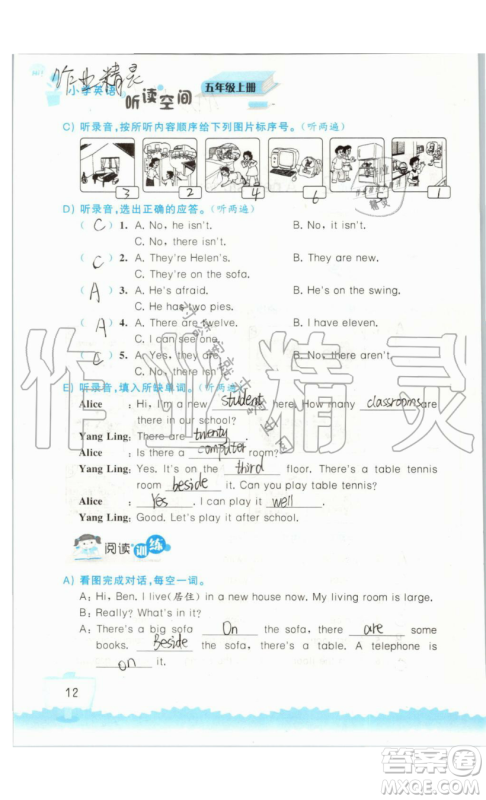 作业精灵
小学英语
听读空间
五年级上册
C) 听录音,按所听内容顺序给下列图片标序号。(听两遍)
3 2 4 6 5 1
D) 听录音,选出正确的应答。(听两遍)
( C ) 1. A. No, he isn't. B. No, it isn't.
C. No, there isn't.
( C ) 2. A. They're Helen's. B. They are new.
C. They're on the sofa.
( A ) 3. A. He is short. B. He's on the swing.
C. He has two pies.
( A ) 4. A. There are twelve. B. I have eleven.
C. I can see one.
( C ) 5. A. Yes, they are. B. No, there aren't.
C. No, there isn't.
E) 听录音,填入所缺单词。(听两遍)
Alice : Hi, I'm a new student here. How many classrooms are
there in our school?
Yang Ling: There are twenty.
Alice : Is there a computer room?
Yang Ling: Yes. It's on the third floor. There's a table tennis
room beside it. Can you play table tennis?
Alice : Yes, I can. I can play it well.
Yang Ling: Good. Let's play it after school.
阅读训练
A) 看图完成对话,每空一词。
A: Hi, Ben. I live(居住) in a new house now. My living room is large.
B: Really? What's in it?
A: There's a big sofa On the sofa, there are some
books. Beside the sofa, there's a table. A telephone
is on it.
12
作业精灵
答案圈